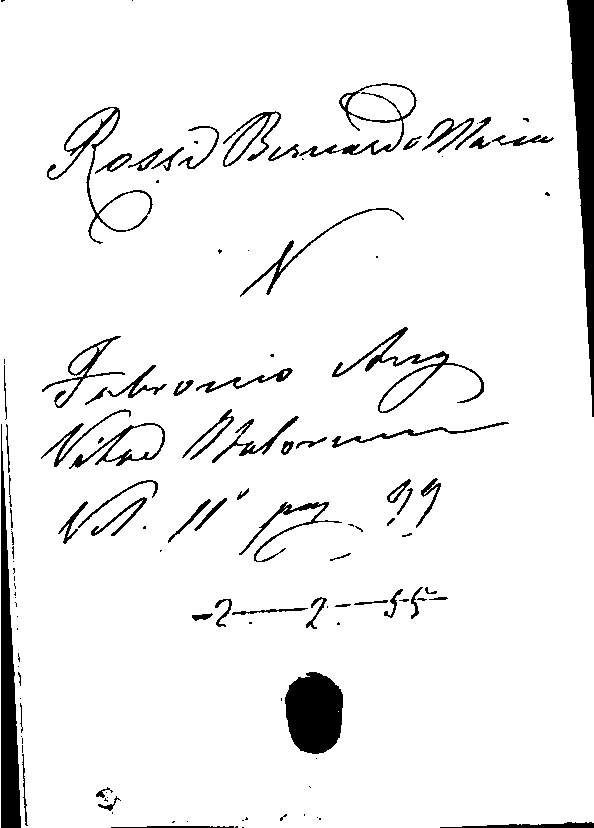 Rossi Bernardo Maria
N
Fabronio Ang
Vitae Italorum
Vol. 11° pag 99
2. 2. 55